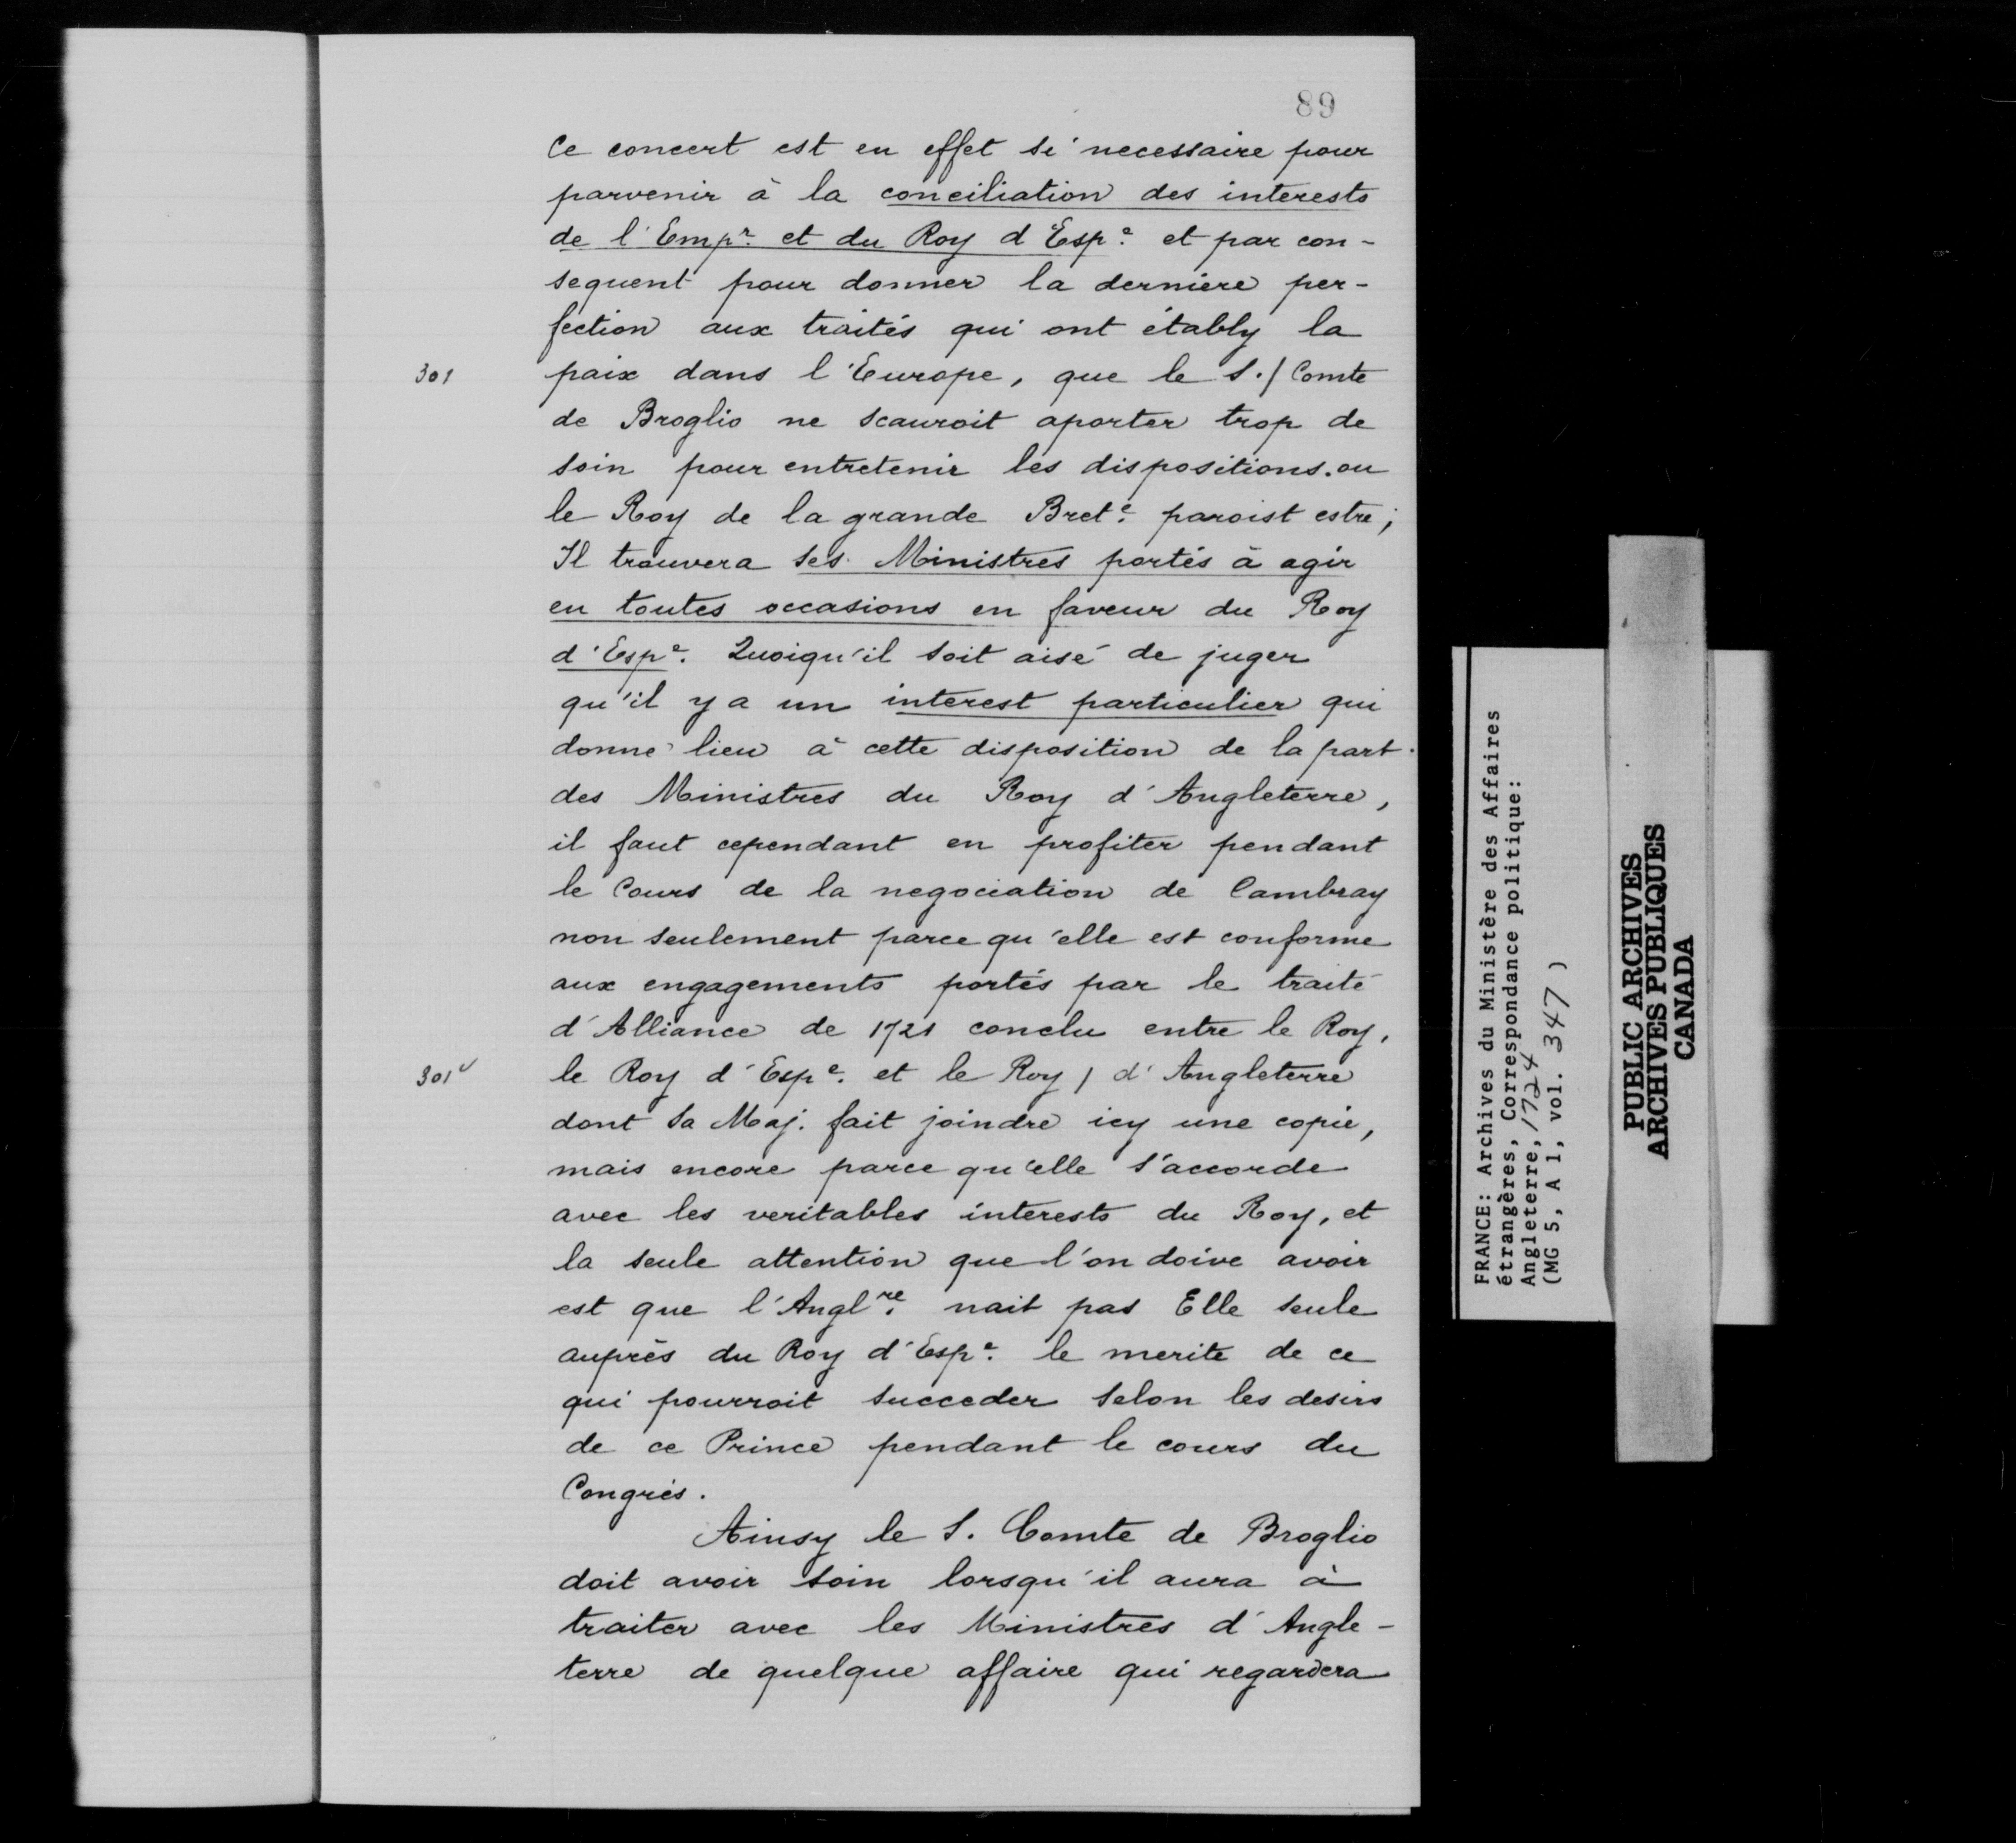 89
Ce concert est en effet si necessaire pour
parvenir à la conciliation des interests
de l'Empr. et du Roy d'Espe. et par con-
sequent pour donner la derniere per-
fection aux traités qui ont étably la
301 paix dans l'Europe, que le S./ Comte
de Broglio ne scauroit aporter trop de
soin pour entretenir les dispositions ou
le Roy de la grande Brete. paroist estre;
Il trouvera ses Ministres portés à agir
en toutes occasions en faveur du Roy
d'Espe. Quoiqu'il soit aisé de juger
qu'il y a un interest particulier qui
donne lieu à cette disposition de la part
des Ministres du Roy d'Angleterre,
il faut cependant en profiter pendant
le Cours de la negociation de Cambray
non seulement parce qu'elle est conforme
aux engagements portés par le traité
d'Alliance de 1721 conclu entre le Roy,
301v le Roy d'Espe. et le Roy / d'Angleterre
dont Sa Maj. fait joindre icy une copie,
mais encore parce qu'elle s'accorde
avec les veritables interests du Roy, et
la seule attention que l'on doive avoir
est que l'Anglre. nait pas Elle seule
auprès du Roy d'Espe. le merite de ce
qui pourroit succeder selon les desirs
de ce Prince pendant le cours du
Congrès.
Ainsy le S. Comte de Broglio
doit avoir soin lorsqu'il aura à
traiter avec les Ministres d'Angle-
terre de quelque affaire qui regardera
FRANCE: Archives du Ministère des Affaires
étrangères, Correspondance politique:
Angleterre, 1724
(MG 5, A 1, vol. 347 )
PUBLIC ARCHIVES
ARCHIVES PUBLIQUES
CANADA